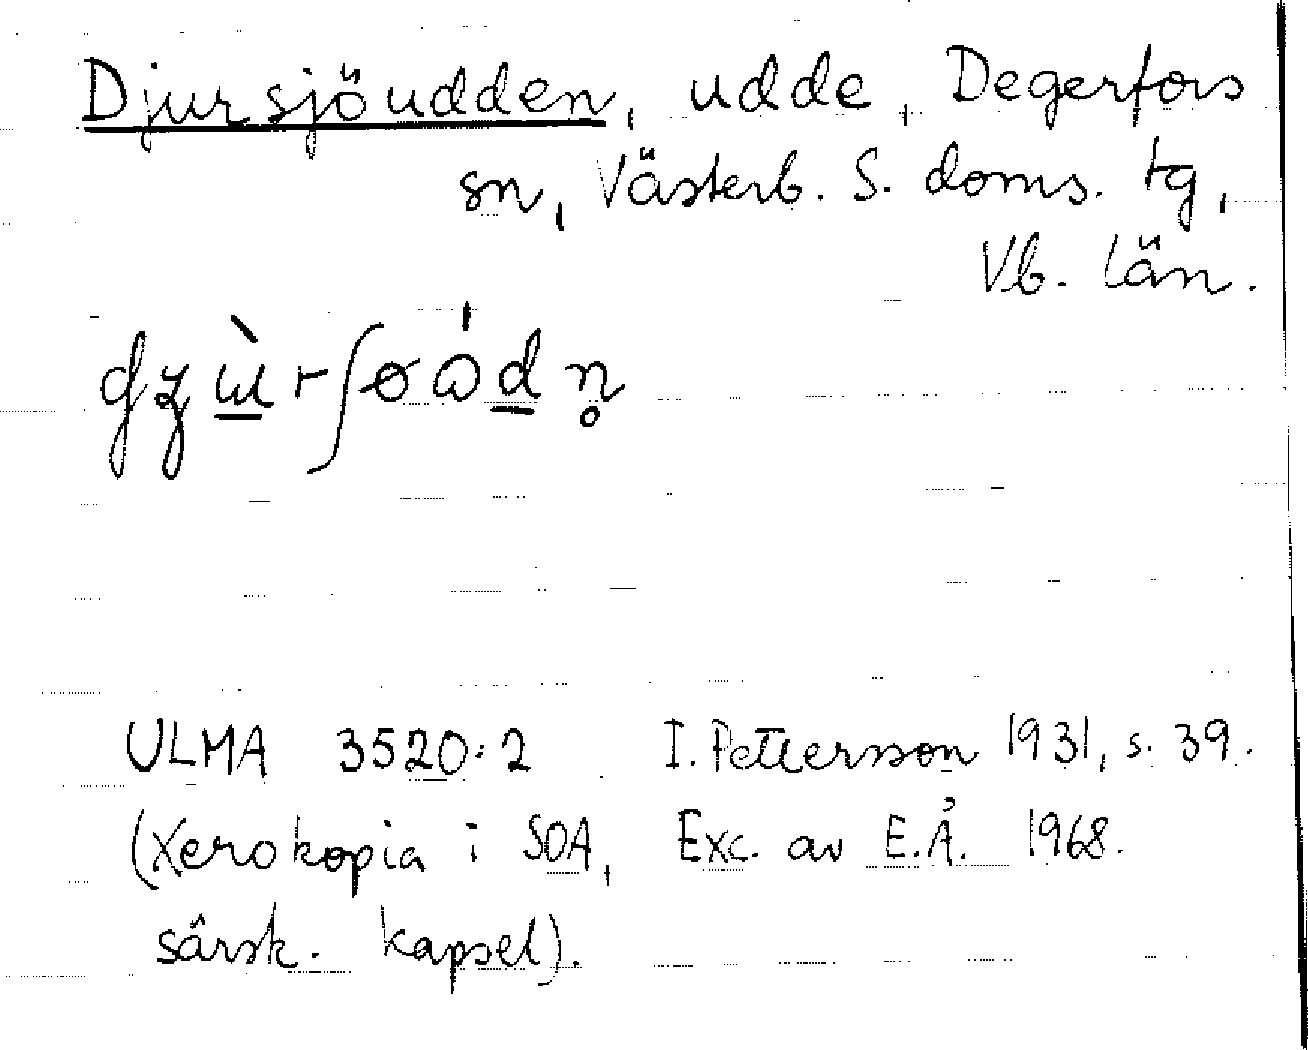 Djursjöudden, udde, Degerfors
sn, Västerb. S. doms. tg,
Vb. län.
ULMA 3520:2 I. Pettersson 1931, s. 39.
(Xerokopia i SOA, Exc. av E.Å. 1968.
särsk. kapsel).